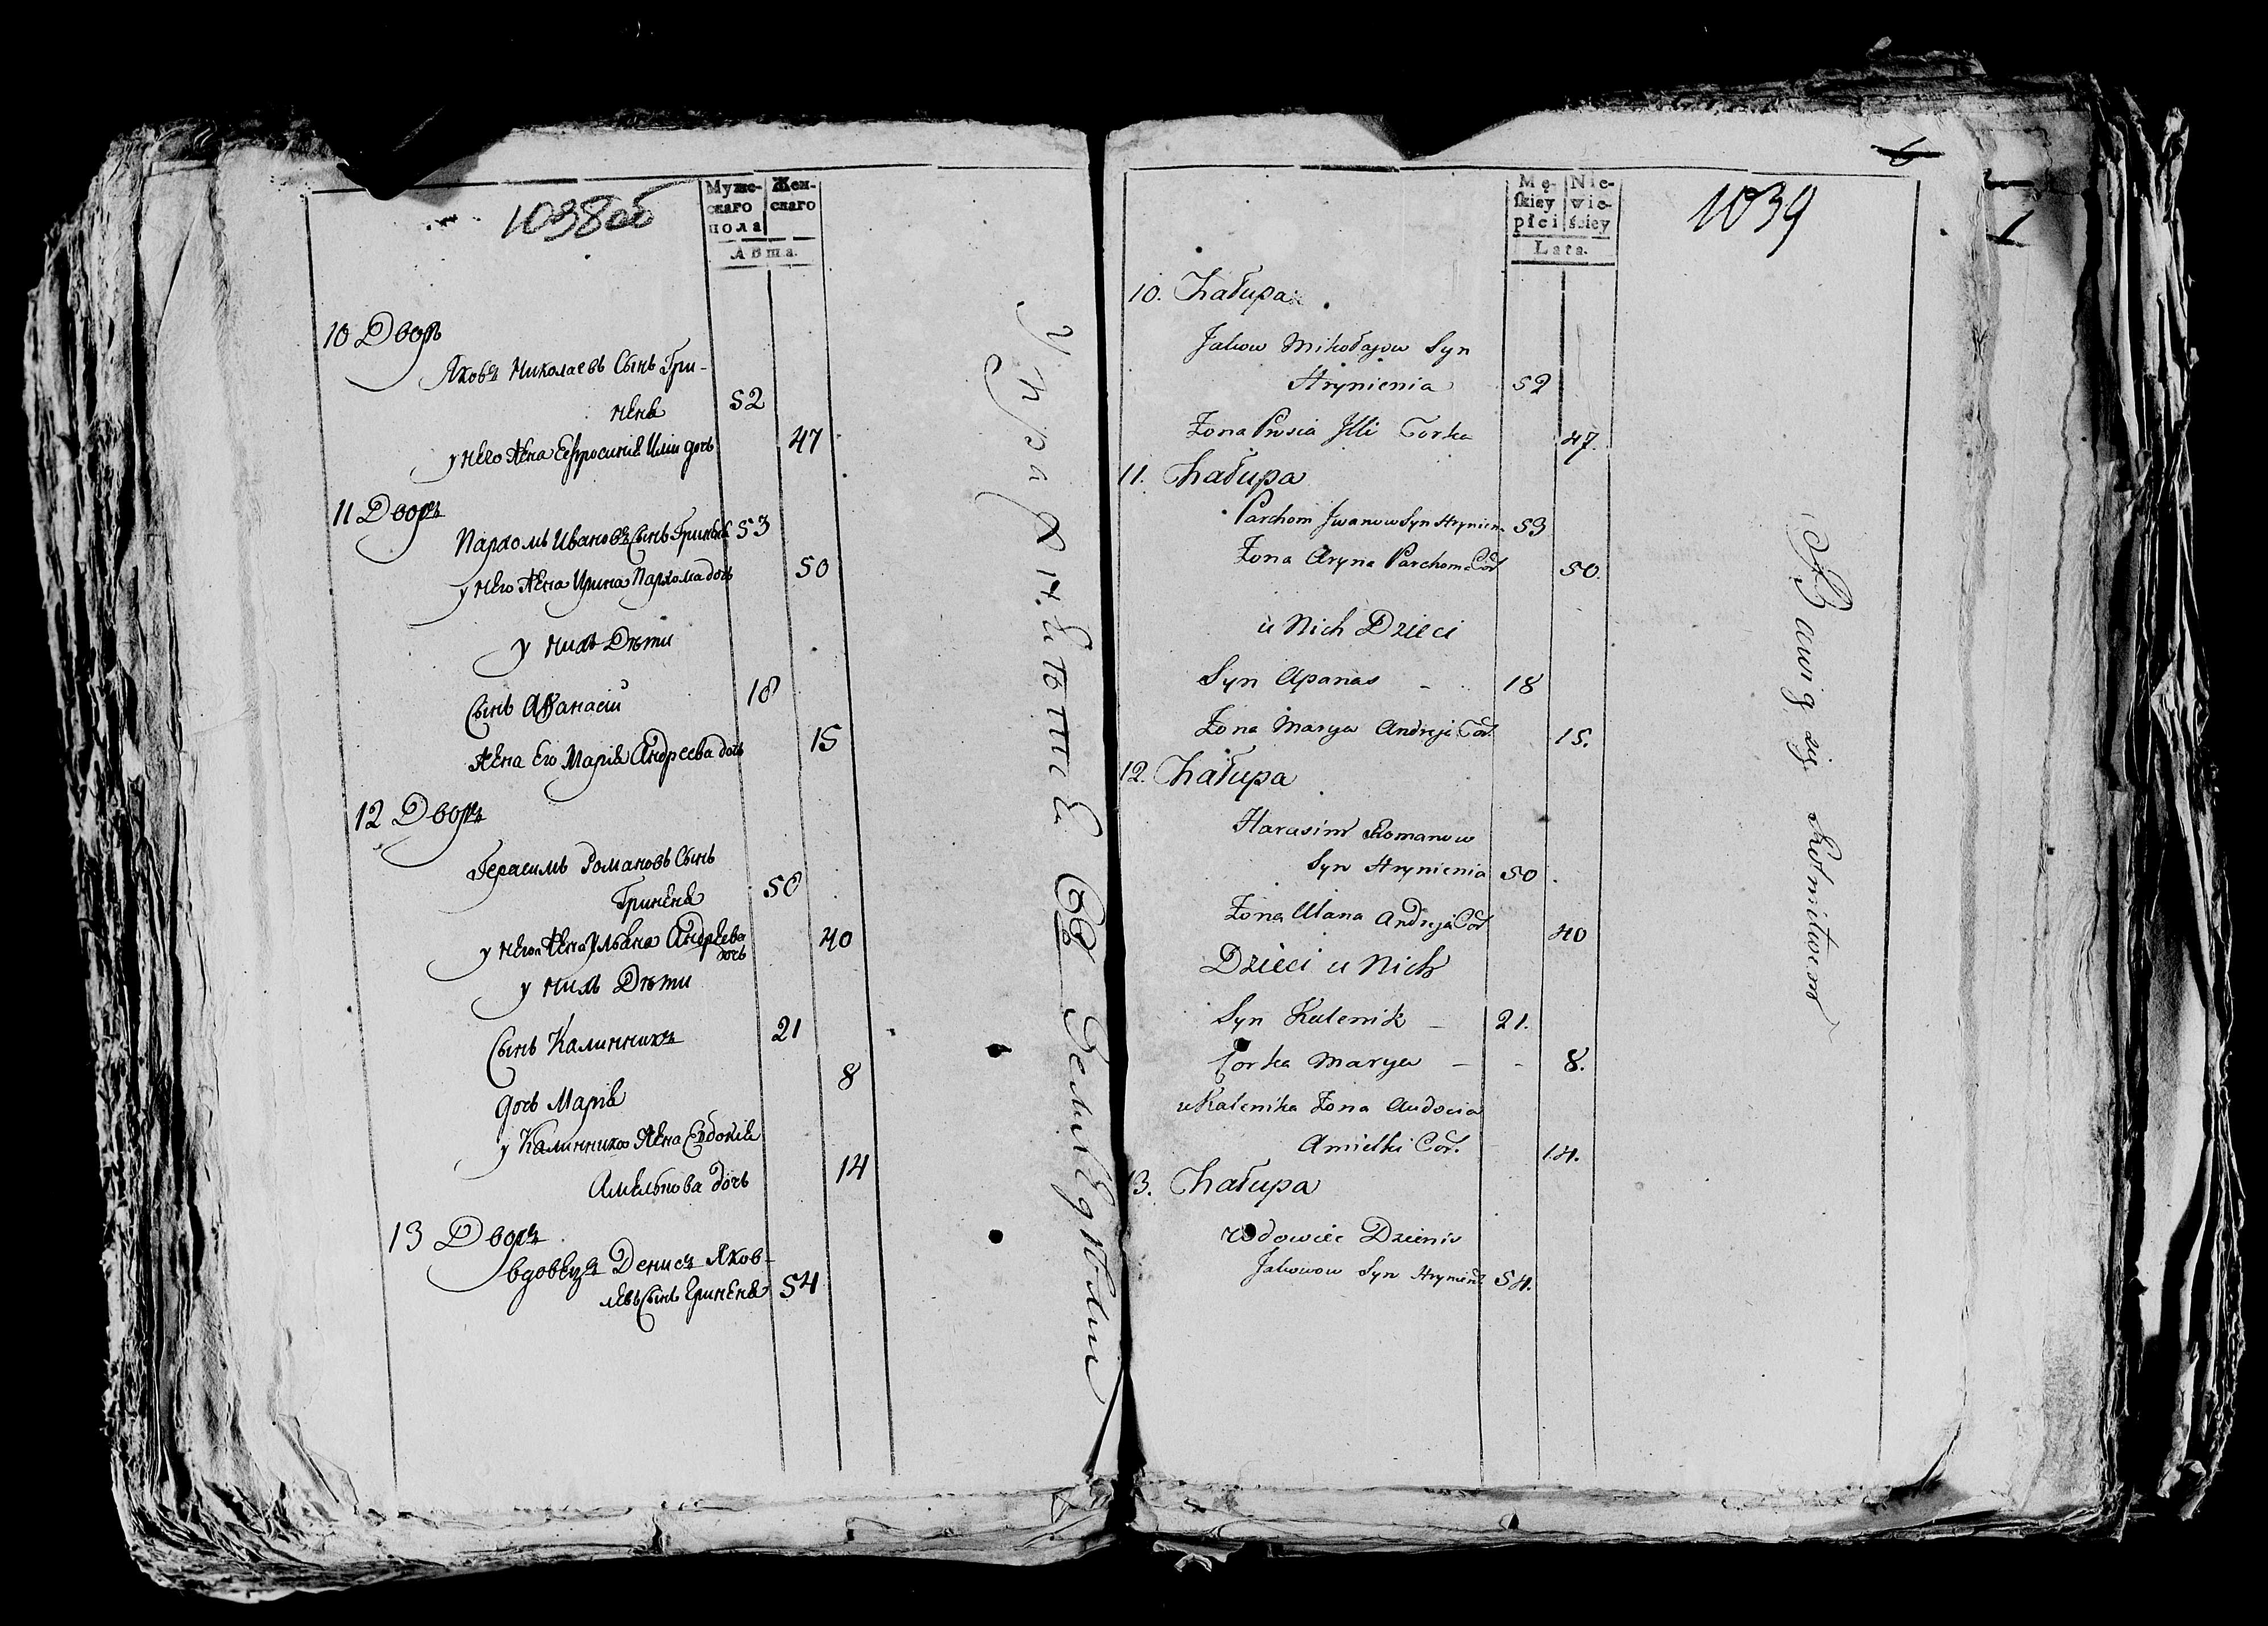 1038об
Мужескаго пола
Женскаго
Лѣта.
10 Дворъ
Яковъ Николаевъ Сынъ Гри-
нѣня 52
у него жена Евфросинія Илiи дочь 47
11 Дворъ
Пархомъ Ивановъ Сынъ Гринѣня 53
у него жена Ирина Пархома дочь 50
у нихъ Дѣти
Сынъ Афанасiй 18
жена Его Марiя Андреева дочь 15
12 Дворъ
Герасимъ Романовъ Сынъ
Гринѣня 50
у него жена Ульяна Андрѣева дочь 40
у нихъ Дѣти
Сынъ Калинникъ 21
дочь Марiя 8
у Калинника жена Евдокiя
Амелькова дочь 14
13 Дворъ
вдовецъ Денисъ Яков-
левъ Сынъ Гринѣня 54
Упражняется Земледѣлiем
6
1039
1
Męskiey płci
Niewieściey
Lata.
10. Chałupa
Jakow Mikołajow Syn
Hrynienia 52
Żona Prosia Illi Corka 47.
11. Chałupa
Parchom Jwanow Syn Hrynien 53
Żona Aryna Parchoma Cor 50.
u Nich Dzieci
Syn Apanas - 18
Żona Marya Andreja Cor. 15.
12. Chałupa
Harasim Romanow
Syn Hrynienia 50
Żona Ulana Andreja Cor 40
Dzieci u Nich
Syn Kalenik - 21.
Corka Marya - - 8.
u Kalenika Żona Audocia
Amielki Cor. 14.
13. Chałupa
Wdowiec Dzienis
Jakowow Syn Hrynien 54.
Bawią się Rolnitwem